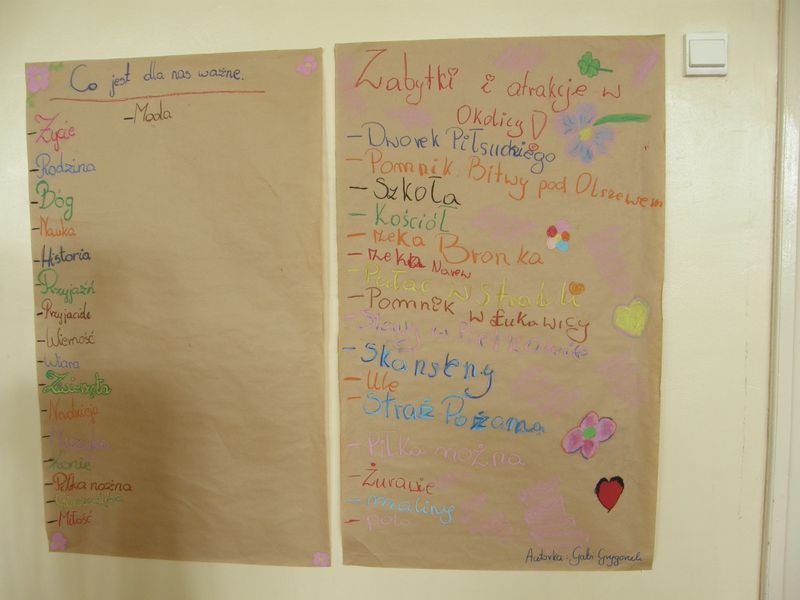 Co jest dla nas ważne.
-Moda
-Życie
-Rodzina
-Bóg
-Nauka
-Historia
-Przyjaźń
-Przyjaciele
-Wierność
-Wiara
-Zwierzęta
-Nadzieja
-Muzyka
-Konie
-Piłka nożna
-Miłość
Zabytki i atrakcje w
Okolicy D
-Dworek Piłsudskiego
-Pomnik Bitwy pod Olszewem
-Szkoła
-Kościół
-rzeka Bronka
-rzeka Narew
-Pałac w
-Pomnik w Łukawicy
-Stawy w
-Skanseny
-Ule
-Straż Pożarna
-Piłka nożna
-Żurawie
-maliny
-pola
Autorka: Gabi